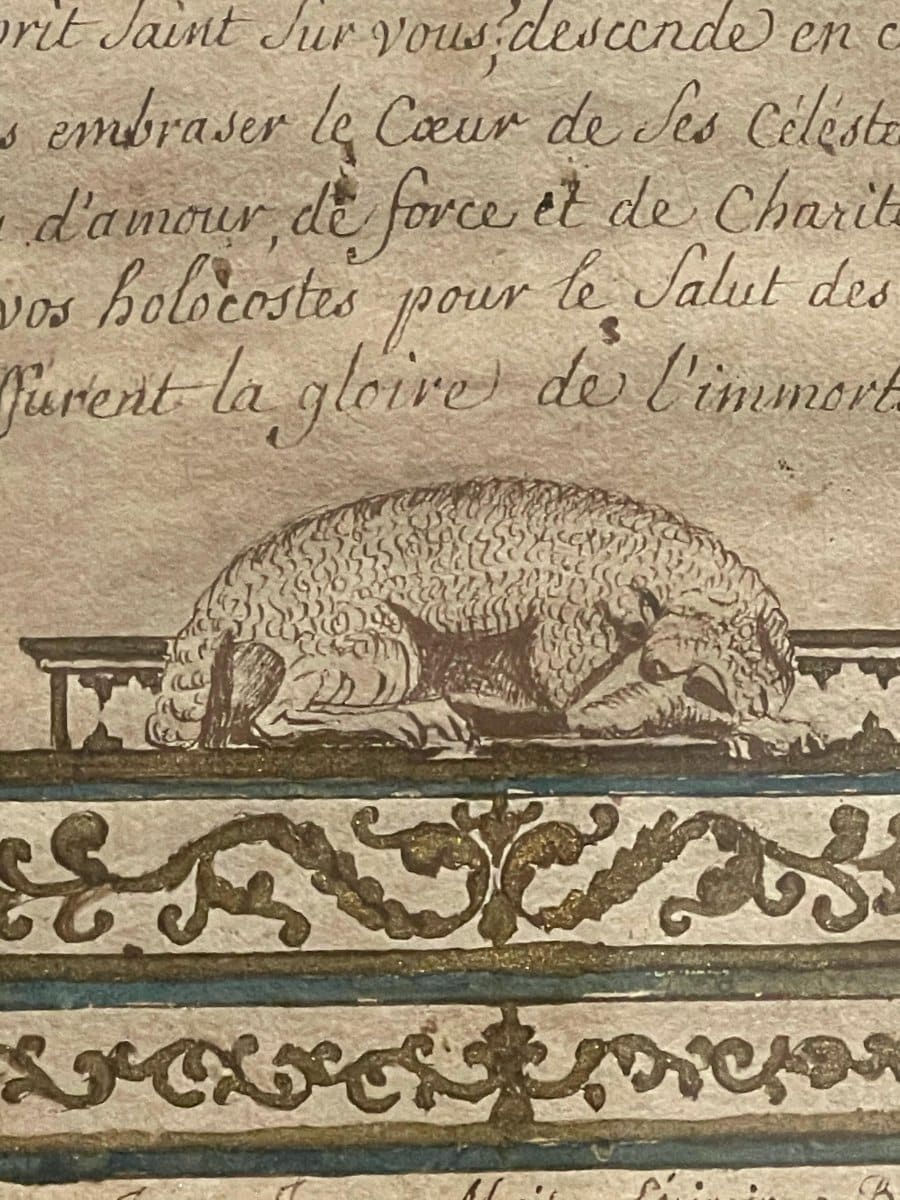 prit Saint Sur vous? descende en c
s embraser le Cœur de Ses Céléste
d'amour, de force et de Charité
vos holocostes pour le Salut des
ssurent la gloire de l'immort